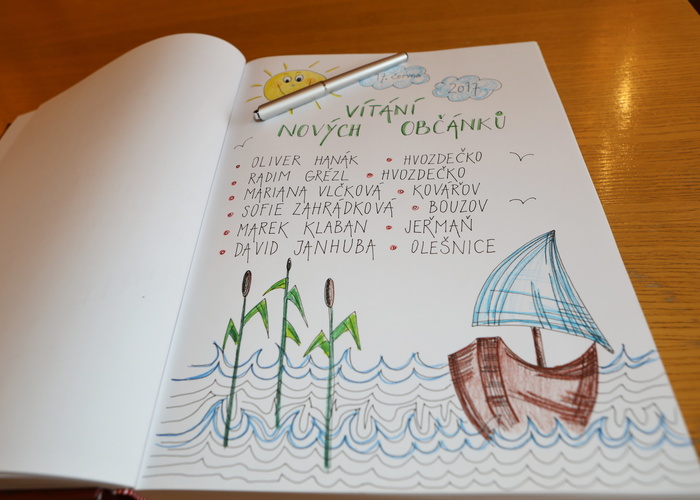 17. června
2017
VÍTÁNÍ
NOVÝCH OBČÁNKŮ
OLIVER HANÁK • HVOZDEČKO
RADIM GRÉZL • HVOZDEČKO
MARIANA VLČKOVÁ • KOVÁŘOV
SOFIE ZAHRÁDKOVÁ • BOUZOV
MAREK KLABAN • JEŘMAŇ
DAVID JANHUBA • OLEŠNICE